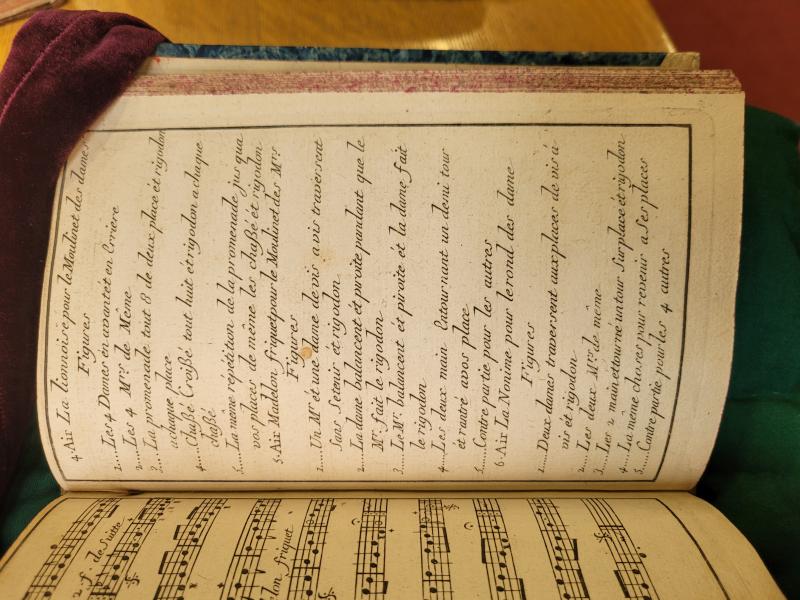 4. Air La lionnoise pour le Moulinet des dames
Figures
1....Les 4 Dames en avant et en Erriere
2....Les 4 Mrs de Meme
3....La promenade tout 8 de deux place et rigodon
a chaque place
4....chaßé Croißé tout huit et rigodon a chaque
chaßé
5....La même repétition de la promenade jus qua
vos places de même les chaßé et rigodon
5. Air Madelon friquet pour le Moulinet des Mrs
Figures
1....Un Mr et une dame de vis a vis traversent
Sans se tenir et rigodon
2....La dame balancent et piroite pandant que le
Mr fait le rigodon
3....Le Mr balancent et piroite et la dame fait
le rigodon
4....Les deux main Entournant un demi tour
et rantré a vos place
5....Contre partie pour les autres
6. Air La Nonime pour le rond des dame
Figures
1....Deux dames traversent aux places de vis à
vis et rigodon
2....Les deux Mrs de même
3....Les 2 main et tourné un tour Sur place et rigodon
4....La même choses pour revenir a Ses places
5....Contre partie pour les 4 autres
2.e f. de Suitte
friquet